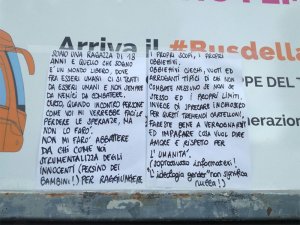 Arriva il #Busdella
SONO UNA RAGAZZA DI 18
ANNI E QUELLO CHE SOGNO
E' UN MONDO LIBERO, DOVE
FRA ESSERI UMANI CI SI TRATTI
DA ESSERI UMANI E NON SEMPRE
DA NEMICI DA COMBATTERE.
CERTO, QUANDO INCONTRO PERSONE
COME VOI MI VERREBBE FACILE
PERDERE LE SPERANZE, MA
NON LO FARO'.
NON MI FARO' ABBATTERE
DA CHI COME VOI
STRUMENTALIZZA DEGLI
INNOCENTI (PERSINO DEI
BAMBINI!) PER RAGGIUNGERE
I PROPRI SCOPI, I PROPRI
OBIETTIVI,
OBIETTIVI CIECHI, VUOTI ED
ARROGANTI TIPICI DI CHI NON
COMBATTE NESSUNO SE NON SE
STESSO ED I PROPRI LIMITI.
INVECE DI SPRECARE INCHIOSTRO
PER QUESTI TREMENDI CARTELLONI,
FARESTE BENE A VERGOGNARVI
ED IMPARARE COSA VUOL DIRE
AMORE E RISPETTO PER
L'UMANITA'.
(soprattutto informatevi!
L'ideologia gender "non significa
nulla!)
PPE DEL
nerazion